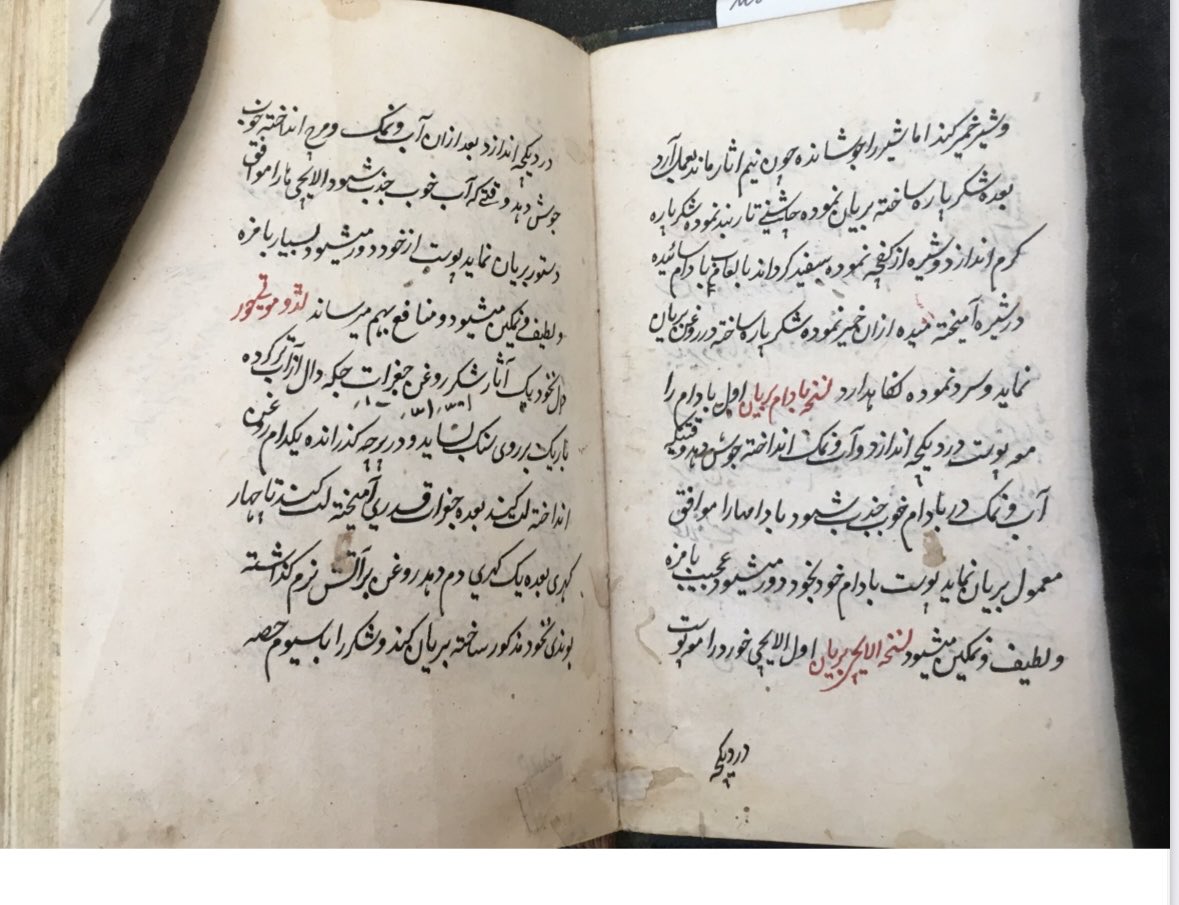 و شیر خمیر کند اما شیر را جوشانده چون نیم اثار ماند بعمل آرد
بعده شکر پاره ساخته بریان نموده چاشنی تار بند نموده شکر پاره
کرم اندازد و شیره از کفچه نموده سفید کرداند یا بادام سائیده
در شیره آمیخته میده ازان خمیر نموده شکر پاره ساخته در روغن بریان
نماید و سرد نموده نکاهدارد نسخه بادام بریان اول بادام را
مع پوست در دیکچه اندازد و آب و نمک انداخته جوش دهد وقتیکه
آب و نمک در بادام خوب جذب شود بادامها را موافق
معمول بریان نماید پوست بادام خود بخود دور میشود عجیب بامزه
و لطیف و نمکین میشود نسخه الایچی بریان اول الایچی خورد را مع پوست
در دیکچه
در دیکچه اندازد بعد ازان آب و نمک و مرچ انداخته خوب
جوش دهد وقتیکه آب خوب جذب شود الایچی ها را موافق
دستور بریان نماید پوست از خود دور میشود بسیار بامزه
و لطیف و نمکین میشود و منافع بهم میرساند لدو موتی چور
دال نخود یک آثار شکر روغن جغرات چکه دال را از آب تر کرده
باریک بر روی سنک بساید و در پرچه کذرانده یکدام روغن
انداخته لت کند بعده جغرات قدری آمیخته لت کند تا چهار
کهری بعده یک کهری دم دهد روغن بر آتش نرم کذاشته
بوندی نخود مذکور ساخته بریان کند و شکر را با سیوم حصه